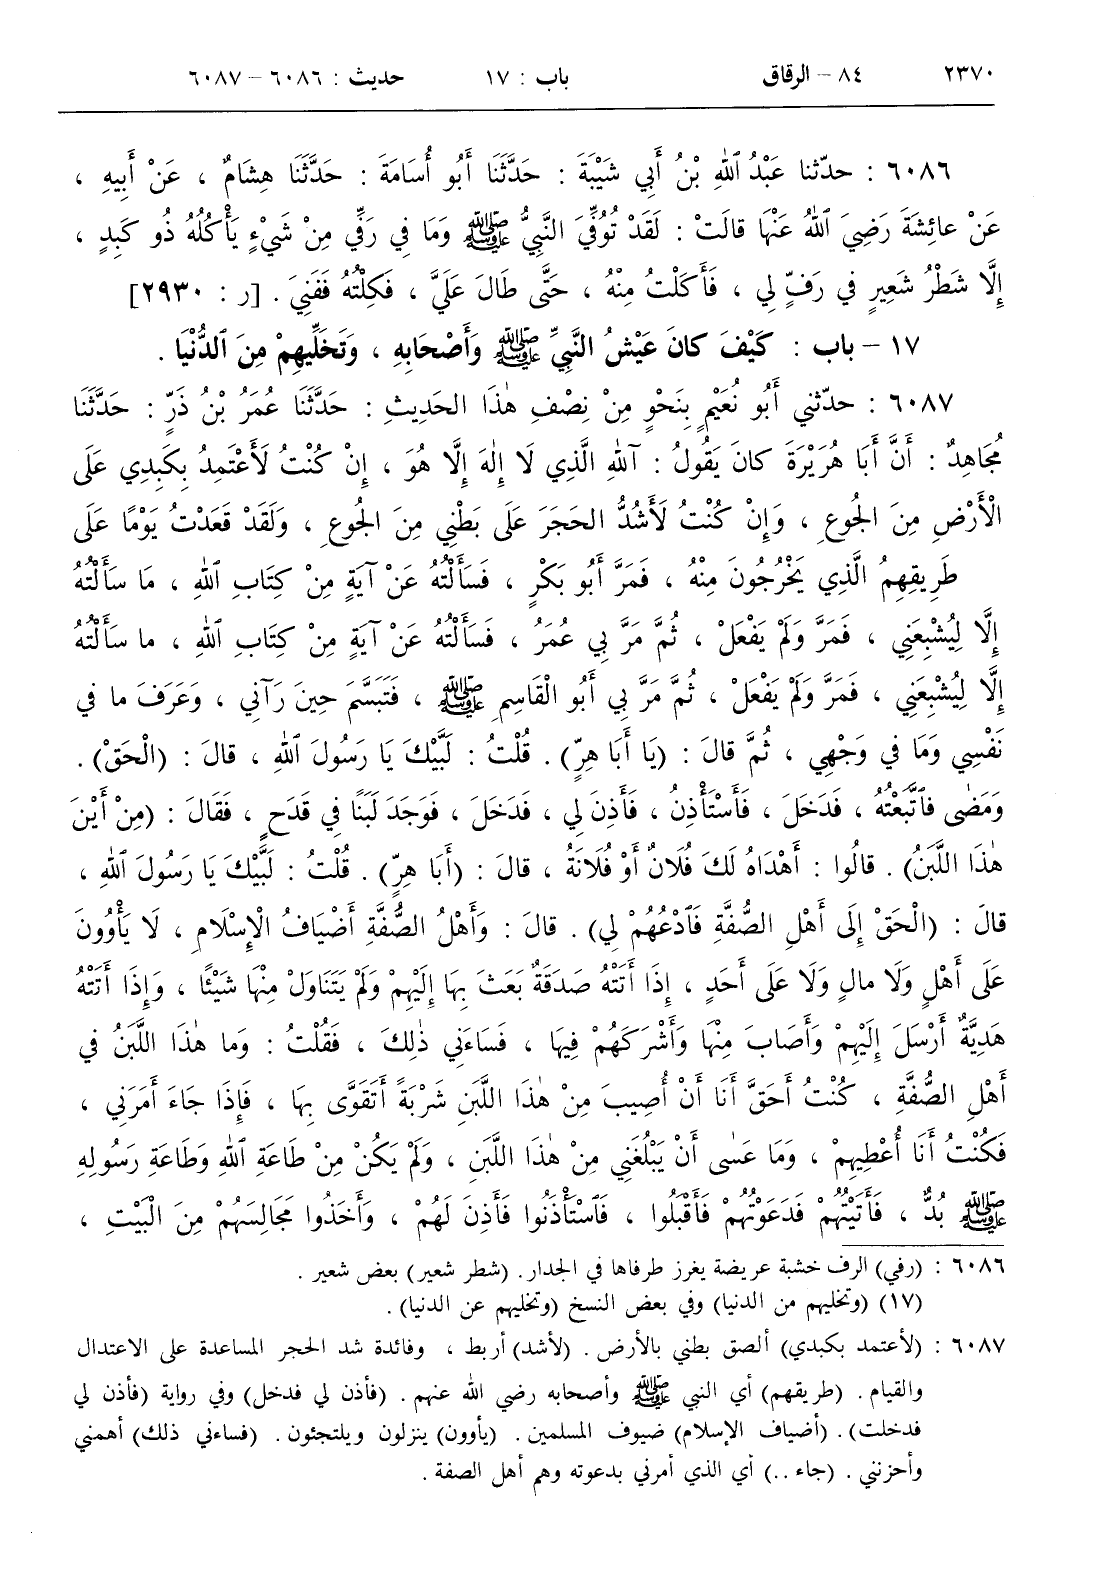 ٢٣٧٠ ٨٤ - الرقاق باب : ١٧ حديث : ٦٠٨٦ - ٦٠٨٧
٦٠٨٦ : حدّثنا عَبْدُ ٱللهِ بْنُ أَبِي شَيْبَةَ : حَدَّثَنَا أَبُو أُسَامَةَ : حَدَّثَنَا هِشَامٌ ، عَنْ أَبِيهِ ،
عَنْ عائِشَةَ رَضِيَ ٱللهُ عَنْهَا قالَتْ : لَقَدْ تُوُفِّيَ النَّبِيُّ ﷺ وَمَا فِي رَفِّي مِنْ شَيْءٍ يَأْكُلُهُ ذُو كَبِدٍ ،
إِلَّا شَطْرُ شَعِيرٍ فِي رَفٍّ لِي ، فَأَكَلْتُ مِنْهُ ، حَتَّى طَالَ عَلَيَّ ، فَكِلْتُهُ فَفَنِيَ . [ر : ٢٩٣٠]
١٧ - باب : كَيْفَ كانَ عَيْشُ النَّبِيِّ ﷺ وَأَصْحَابِهِ ، وَتَخَلِّيهِمْ مِنَ ٱلدُّنْيَا .
٦٠٨٧ : حدّثني أَبُو نُعَيْمٍ بِنَحْوٍ مِنْ نِصْفِ هٰذَا الحَدِيثِ : حَدَّثَنَا عُمَرُ بْنُ ذَرٍّ : حَدَّثَنَا
مُجَاهِدٌ : أَنَّ أَبَا هُرَيْرَةَ كانَ يَقُولُ : آللهِ الَّذِي لَا إِلٰهَ إِلَّا هُوَ ، إِنْ كُنْتُ لَأَعْتَمِدُ بِكَبِدِي عَلَى
الْأَرْضِ مِنَ الجُوعِ ، وَإِنْ كُنْتُ لَأَشُدُّ الحَجَرَ عَلَى بَطْنِي مِنَ الجُوعِ ، وَلَقَدْ قَعَدْتُ يَوْمًا عَلَى
طَرِيقِهِمُ الَّذِي يَخْرُجُونَ مِنْهُ ، فَمَرَّ أَبُو بَكْرٍ ، فَسَأَلْتُهُ عَنْ آيَةٍ مِنْ كِتَابِ ٱللهِ ، مَا سَأَلْتُهُ
إِلَّا لِيُشْبِعَنِي ، فَمَرَّ وَلَمْ يَفْعَلْ ، ثُمَّ مَرَّ بِي عُمَرُ ، فَسَأَلْتُهُ عَنْ آيَةٍ مِنْ كِتَابِ ٱللهِ ، ما سَأَلْتُهُ
إِلَّا لِيُشْبِعَنِي ، فَمَرَّ وَلَمْ يَفْعَلْ ، ثُمَّ مَرَّ بِي أَبُو الْقَاسِمِ ﷺ ، فَتَبَسَّمَ حِينَ رَآنِي ، وَعَرَفَ ما فِي
نَفْسِي وَمَا فِي وَجْهِي ، ثُمَّ قالَ : (يَا أَبَا هِرٍّ) . قُلْتُ : لَبَّيْكَ يَا رَسُولَ ٱللهِ ، قالَ : (الْحَقْ) .
وَمَضٰى فاتَّبَعْتُهُ ، فَدَخَلَ ، فَأَسْتَأْذِنُ ، فَأَذِنَ لِي ، فَدَخَلَ ، فَوَجَدَ لَبَنًا فِي قَدَحٍ ، فَقَالَ : (مِنْ أَيْنَ
هٰذَا اللَّبَنُ) . قالُوا : أَهْدَاهُ لَكَ فُلَانٌ أَوْ فُلَانَةُ ، قالَ : (أَبَا هِرٍّ) . قُلْتُ : لَبَّيْكَ يَا رَسُولَ ٱللهِ ،
قالَ : (الْحَقْ إِلَى أَهْلِ الصُّفَّةِ فَٱدْعُهُمْ لِي) . قالَ : وَأَهْلُ الصُّفَّةِ أَضْيَافُ الْإِسْلَامِ ، لَا يَأْوُونَ
عَلَى أَهْلٍ وَلَا مالٍ وَلَا عَلَى أَحَدٍ ، إِذَا أَتَتْهُ صَدَقَةٌ بَعَثَ بِهَا إِلَيْهِمْ وَلَمْ يَتَنَاوَلْ مِنْهَا شَيْئًا ، وَإِذَا أَتَتْهُ
هَدِيَّةٌ أَرْسَلَ إِلَيْهِمْ وَأَصَابَ مِنْهَا وَأَشْرَكَهُمْ فِيهَا ، فَسَاءَنِي ذٰلِكَ ، فَقُلْتُ : وَما هٰذَا اللَّبَنُ فِي
أَهْلِ الصُّفَّةِ ، كُنْتُ أَحَقَّ أَنَا أَنْ أُصِيبَ مِنْ هٰذَا اللَّبَنِ شَرْبَةً أَتَقَوَّى بِهَا ، فَإِذَا جَاءَ أَمَرَنِي ،
فَكُنْتُ أَنَا أُعْطِيهِمْ ، وَمَا عَسٰى أَنْ يَبْلُغَنِي مِنْ هٰذَا اللَّبَنِ ، وَلَمْ يَكُنْ مِنْ طَاعَةِ ٱللهِ وَطَاعَةِ رَسُولِهِ
ﷺ بُدٌّ ، فَأَتَيْتُهُمْ فَدَعَوْتُهُمْ فَأَقْبَلُوا ، فَٱسْتَأْذَنُوا فَأَذِنَ لَهُمْ ، وَأَخَذُوا مَجَالِسَهُمْ مِنَ الْبَيْتِ ،
٦٠٨٦ : (رفي) الرف خشبة عريضة يغرز طرفاها في الجدار. (شطر شعير) بعض شعير .
(١٧) (وتخليهم من الدنيا) وفي بعض النسخ (وتخليهم عن الدنيا) .
٦٠٨٧ : (لأعتمد بكبدي) ألصق بطني بالأرض . (لأشد) أربط ، وفائدة شد الحجر المساعدة على الاعتدال
والقيام . (طريقهم) أي النبي ﷺ وأصحابه رضي الله عنهم . (فأذن لي فدخل) وفي رواية (فأذن لي
فدخلت) . (أضياف الإسلام) ضيوف المسلمين . (يأوون) ينزلون ويلتجئون . (فساءني ذلك) أهمني
وأحزنني . (جاء ..) أي الذي أمرني بدعوته وهم أهل الصفة .